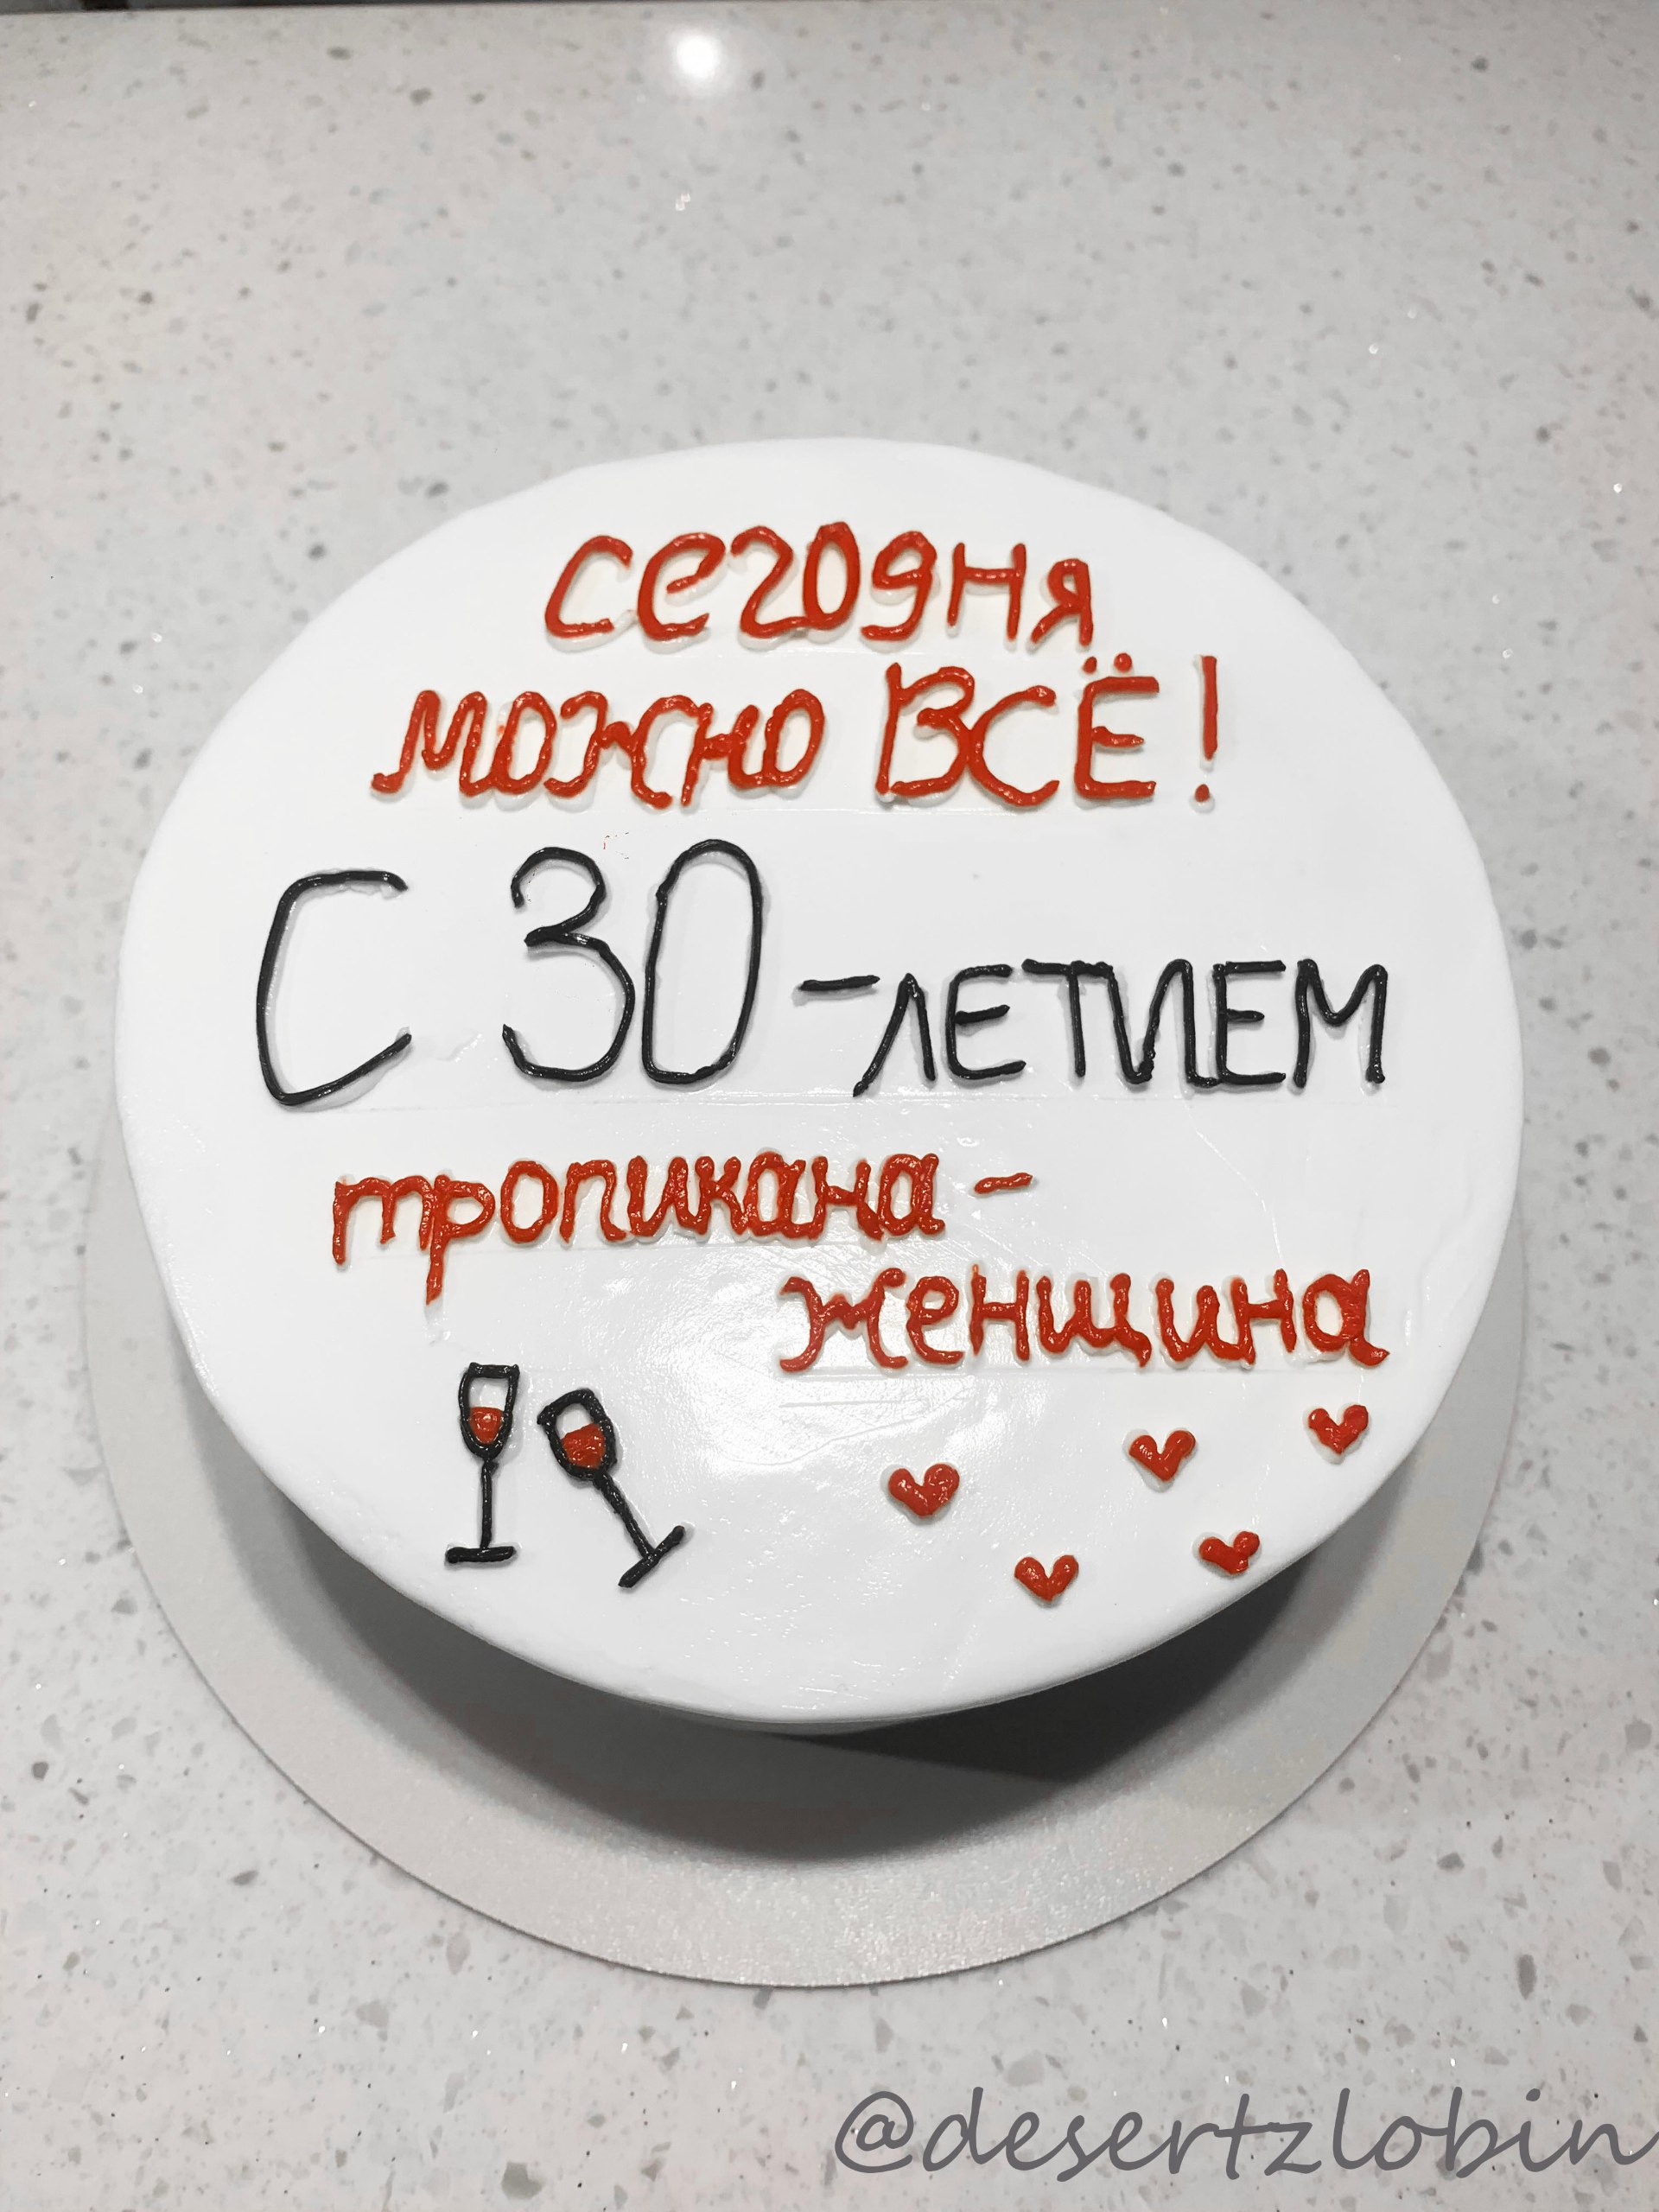 сегодня
можно ВСЁ!
С 30-ЛЕТИЕМ
тропикана-
женщина
@desertzlobin